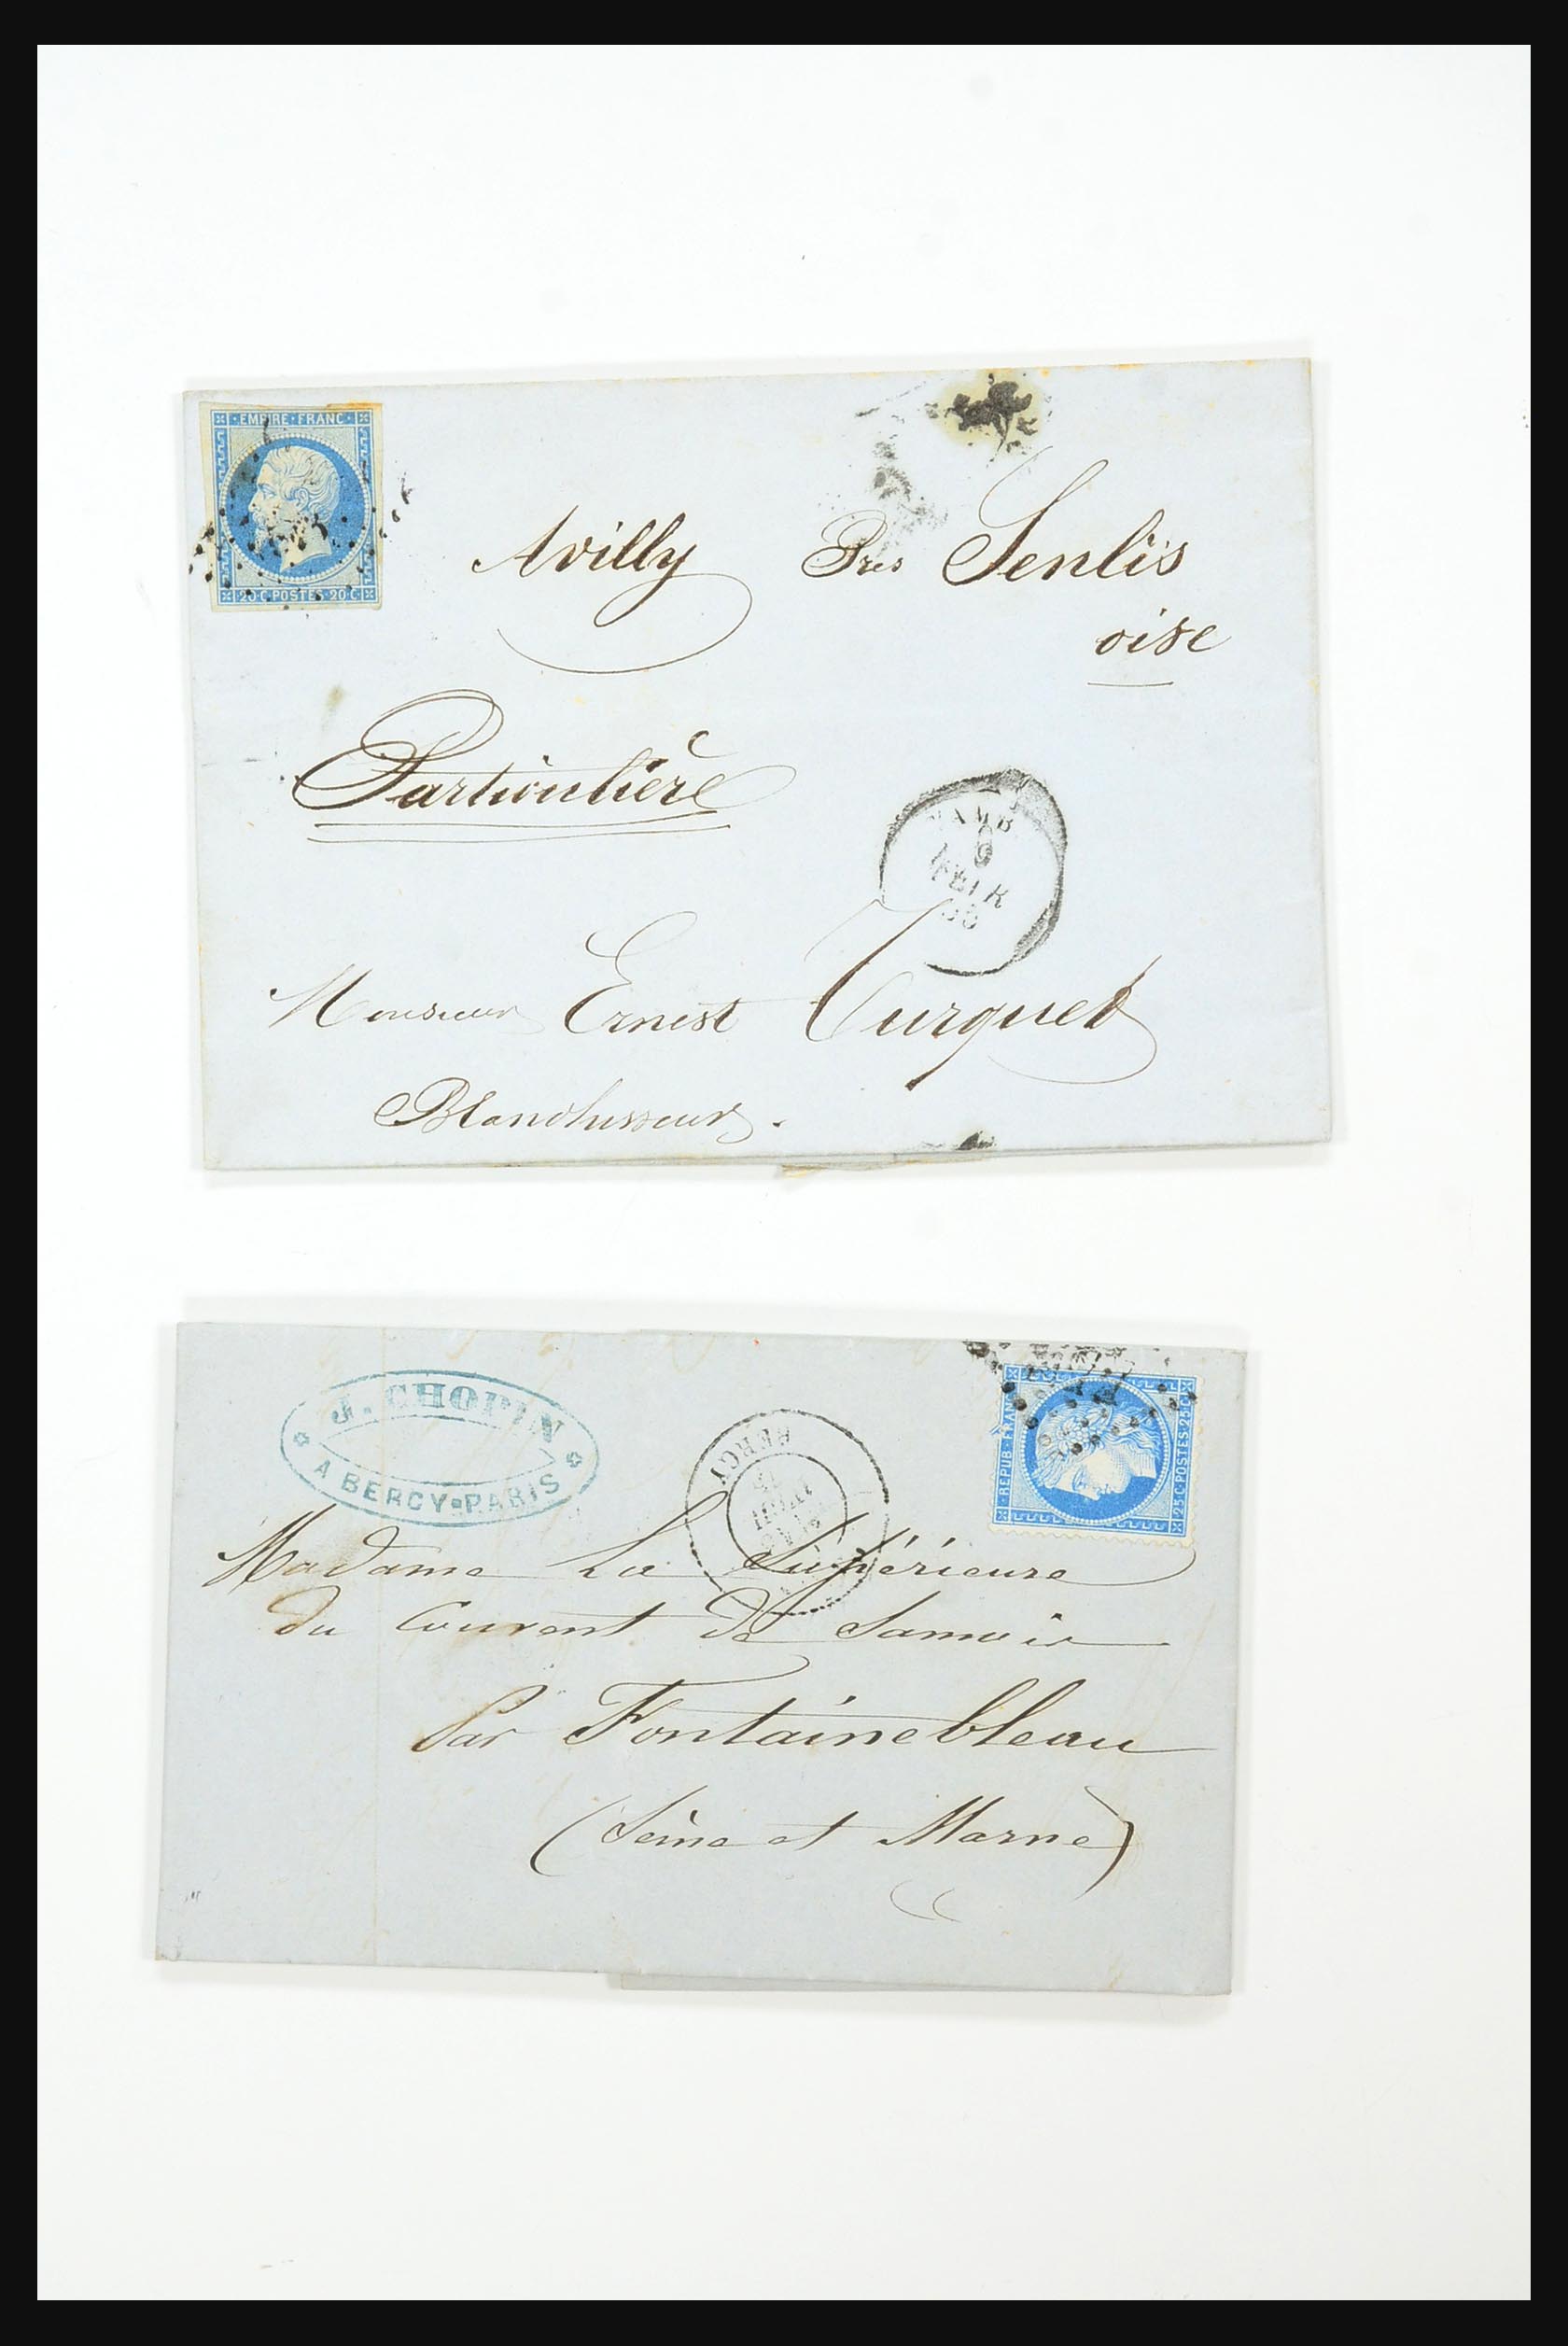 EMPIRE FRANC
20 C POSTES 20 C
Avilly Près Senlis
oise
Particulière
9
Monsieur Ernest Turquet
Blanchisseur.
J. CHOPIN
A BERCY-PARIS
BERCY
REPUB FRANC
25 C POSTES 25 C
Madame La Supérieure
du Couvent de Samois
Par Fontainebleau
(Seine et Marne)